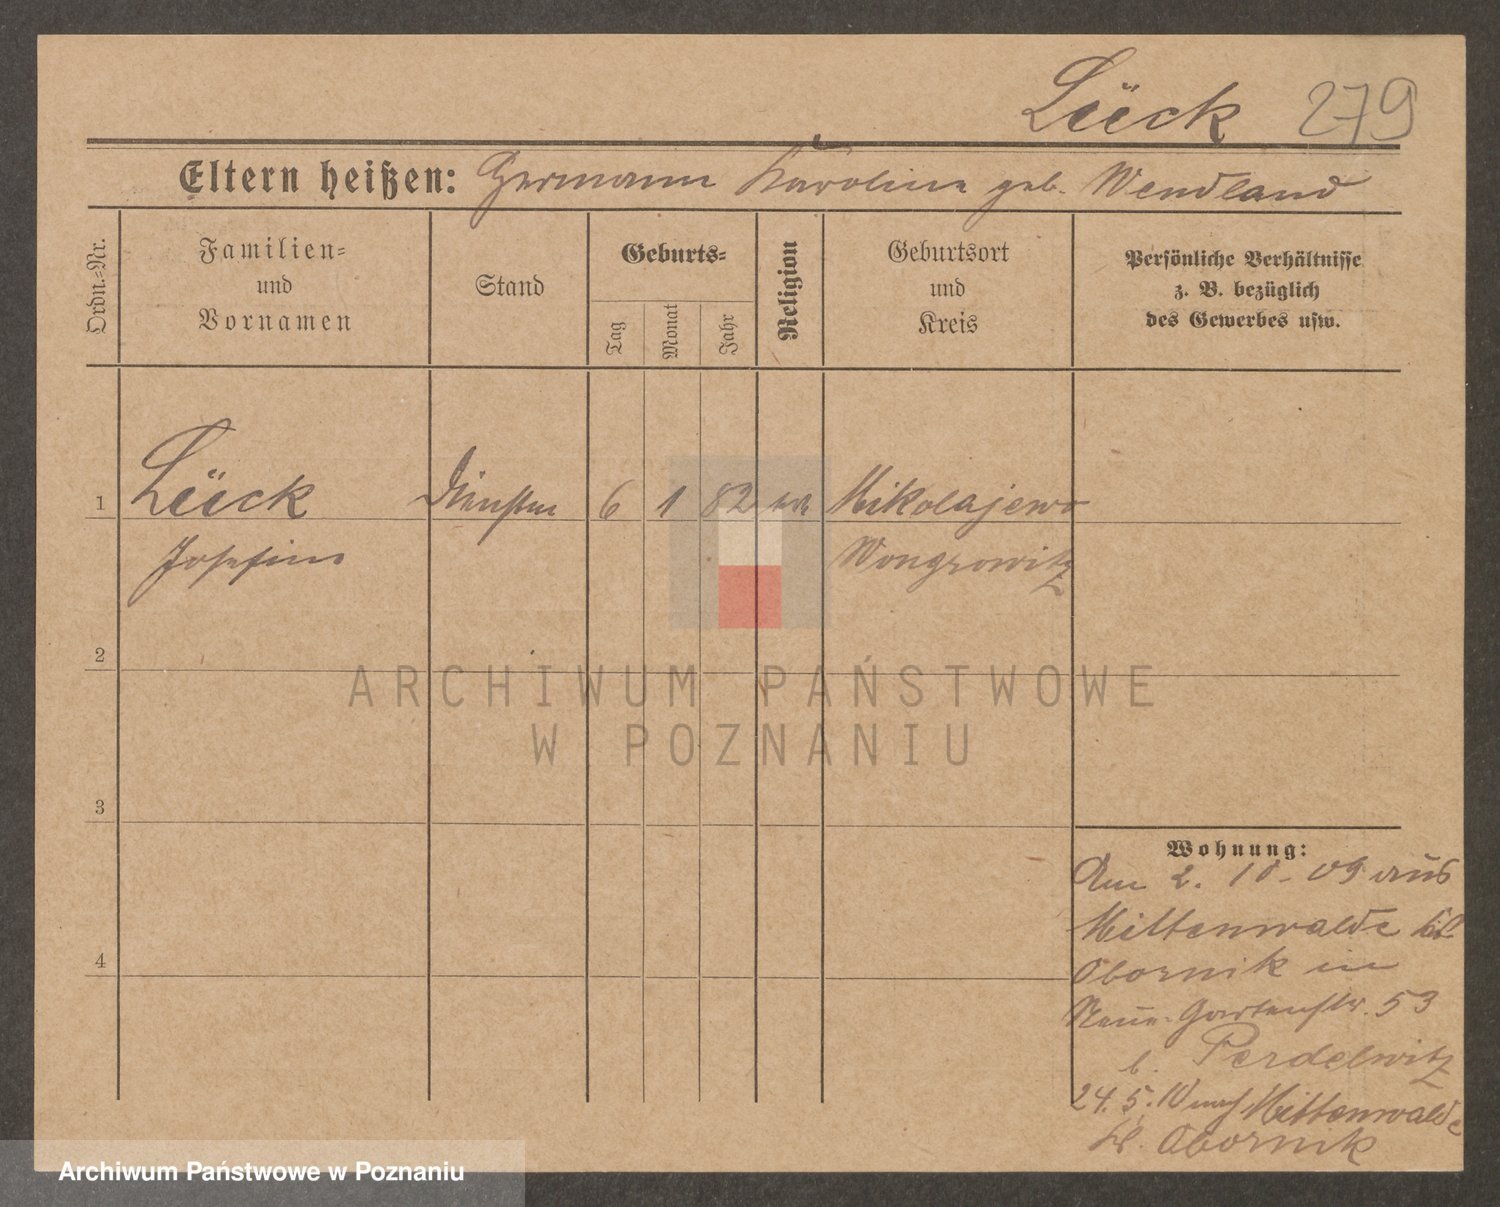 Lück 279
Eltern heißen: Hermann Karoline geb. Wendland
Ordn.-Nr.
Familien-
und
Vornamen
Stand
Geburts-
Tag
Monat
Jahr
Religion
Geburtsort
und
Kreis
Persönliche Verhältnisse
z. B. bezüglich
des Gewerbes usw.
1 Lück 6 1 82 Mikolajewo
Josefine Wongrowitz
2
3
4
Wohnung:
Am 2. 10. 09 aus
Mittenwalde
Obornik in
Neue Gartenstr. 53
b. Perdelwitz
24. 5. 10 nach Mittenwalde
Kr. Obornik
ARCHIWUM PAŃSTWOWE
W POZNANIU
Archiwum Państwowe w Poznaniu